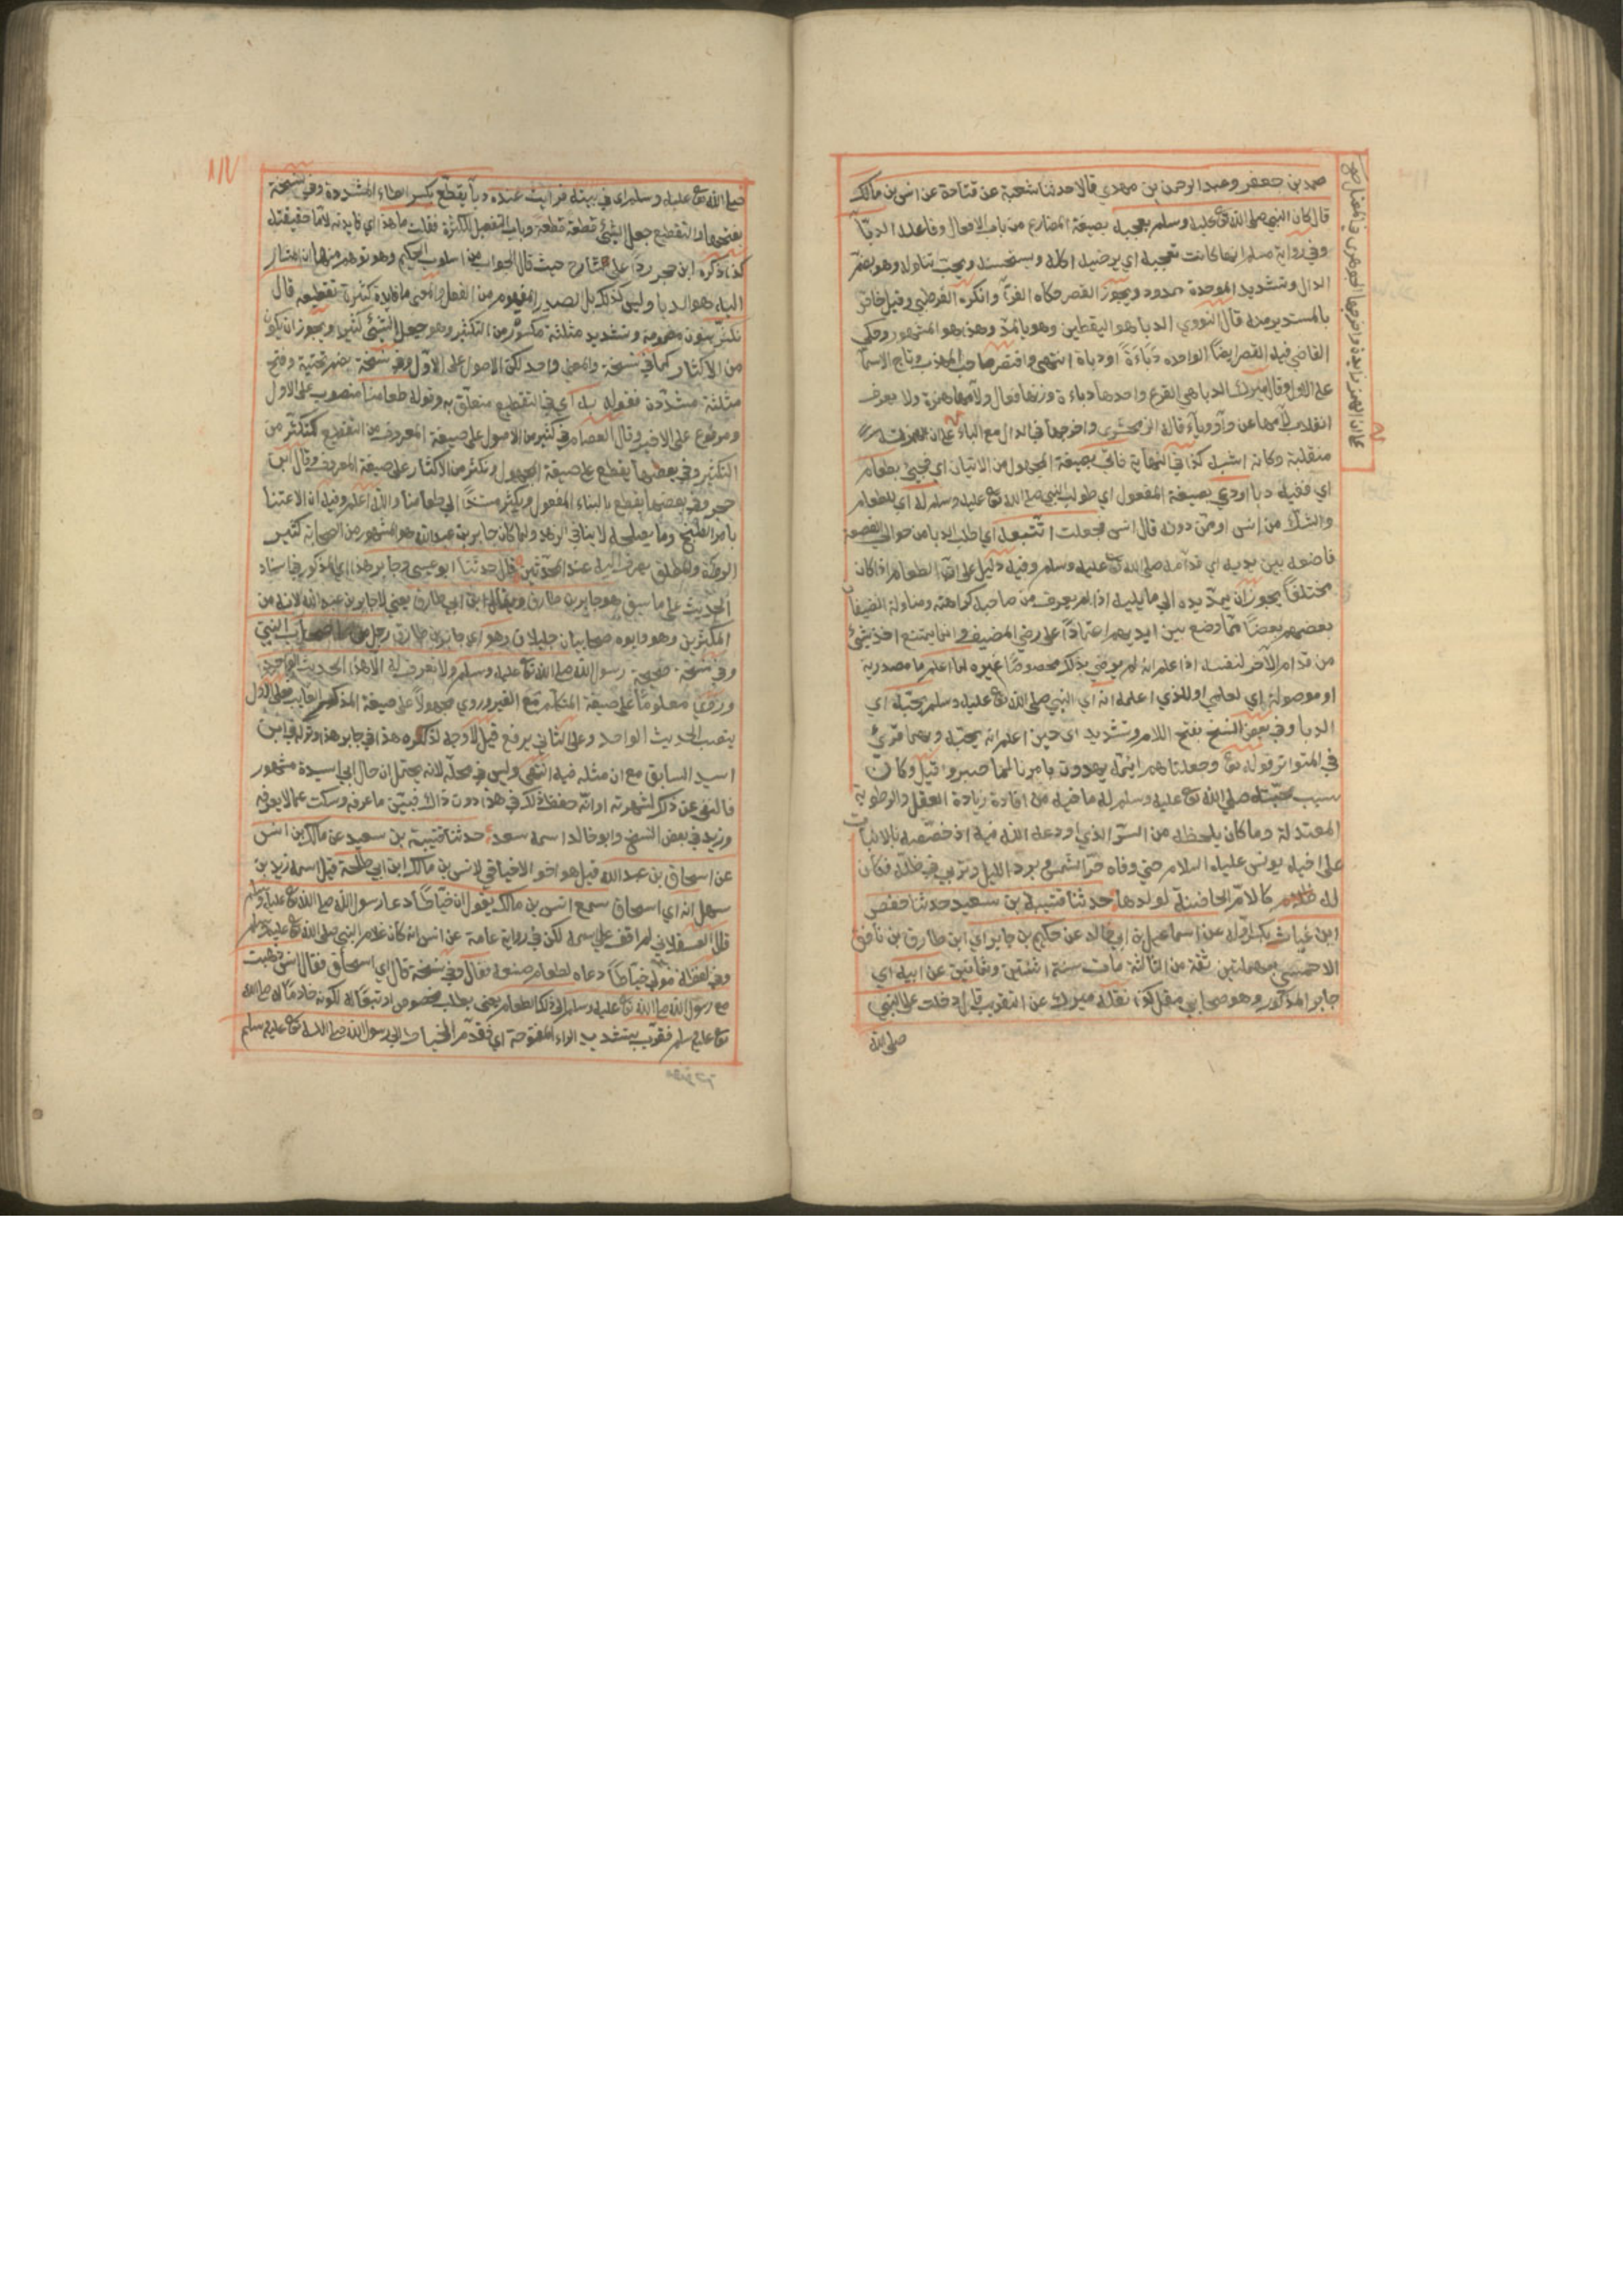 محمد بن جعفر وعبد الرحمن بن مهدي قالا حدثنا شعبة عن قتادة عن انس بن مالك
قال كان النبي صلى الله تع عليه وسلم يعجبه بصيغة المضارع من باب الافعال وفاعله الدبآ
وفي رواية مسلم انها كانت تعجبه اي يرضيه اكله ويستحسنه ويحب تناوله وهو بضم
الدال وتشديد الموحدة ممدود ويجوز القصر حكاه الفرآ وانكره القرطبي وقيل خاص
بالمستدير منه قال النووي الدبا هو اليقطين وهو بالمد وهذا هو المشهور وحكى
القاضي فيه القصر ايضا الواحده دباءة او دباة انتهى واقتصر صاحب المهذب وتاج الاسما
على الاول وقال ميرك الدبا هي القرع واحدها دباءة وزنها فعال ولامها همزة ولا يعرف
انقلاب لامها عن واو وياء قاله الزمخشري واخرجها في الدال مع الباء على ان
منقلبة وكانه اشبه كذا في النهاية فاتي بصيغة المجهول من الاتيان اي فجيئ بطعام
اي ففيه دبا اودعي بصيغة المفعول اي طولب النبي صلى الله تع عليه وسلم له اي للطعام
والشك من انس او ممن دونه قال انس فجعلت اتتبعه اي اطلب الدبا من حوالي القصعة
فاضعه بين يديه اي قدامه صلى الله تع عليه وسلم وفيه دليل على ان الطعام اذا كان
مختلفا يجوز ان يمد يده الى ما يليه اذا لم يعرف من صاحبه كراهته ومناولة الضيفان
بعضهم بعضا مما وضع بين ايديهم اعتمادا على رضى المضيف وانما يمتنع اخذ شئ
من قدام الاخر لنفسه اذا علم انه لم يرض بذلك مخصوصا غيره لما اعلم ما مصدرية
او موصولة اي لعلمي او للذي اعلمه انه اي النبي صلى الله تع عليه وسلم يحبه اي
الدبا وفي بعض النسخ بفتح اللام وتشديد اي حين اعلم انه يحبه وبهما قرئ
في المتواتر قوله تع وجعلناهم ائمة يهدون بامرنا لما صبروا قيل وكان
سبب محبته صلى الله تع عليه وسلم له ما فيه من افادة زيادة العقل والرطوبة
المعتدلة وما كان يلحظه من السر الذي اودعه الله فيه اذ خصصه بالانبات
على اخيه يونس عليه السلام حتى وقاه حر الشمس وبرد الليل وتربي في ظله فكان
له كالام الحاضنة لولدها حدثنا قتيبة بن سعيد حدثنا حفص
ابن غياث بكسر اوله عن اسماعيل بن ابي خالد عن حكيم بن جابر اي ابن طارق بن
الاحمسي بمهملتين ثقة من الثالثة مات سنة اثنتين وثمانين عن ابيه اي
جابر المذكور وهو صحابي مقل كذا نقله ميرك عن التقريب قال دخلت على النبي
صلى الله
صلى الله تع عليه وسلم اي في بيته فرايت عنده دبآ يقطع بكسر الطاء المشددة وفي نسخة
بفتحها والتقطيع جعل الشئ قطعة قطعة وباب التفعيل للكثرة فقلت ما هذا اي فايدته لا ما حقيقته
كذا ذكره ابن حجر ردا على شارح حيث قال الجواب من اسلوب الحكيم وهو توهم منهما ان المشار
اليه هو الدبا وليس كذلك بل المصدر المفهوم من الفعل والمعنى ما فايدة كثرة تقطيعه قال
نكثر بنون مضمومة وتشديد مثلثة مكسورة من التكثير وهو جعل الشئ كثيرا ويجوز ان يكون
من الاكثار كما في نسخة والمعنى واحد لكن الاصول على الاول وفي نسخة بضم تحتية وفتح
مثلثة مشددة فقوله به اي في التقطيع متعلق به وقوله طعامنا منصوب على الاول
ومرفوع على الاخير وقال العصام في كثير من الاصول على صيغة المعروف من التقطيع كنكثر من
التكثير وفي بعضها يقطع على صيغة المجهول ونكثر من الاكثار على صيغة المعروف وقال ابن
حجر وفي بعضها يقطع بالبناء للمفعول ويكثر مسندا الى طعامنا والله اعلم وفيه ان الاعتنا
بامر الطبخ وما يصلحه لا ينافي الزهد ولما كان جابر بن عبد الله هو المشهور من الصحابة كثير
الرواية والمطلق يصرف اليه عند المحدثين قال حدثنا ابو عيسى وجابر هذا اي المذكور في اسناد
الحديث على ما سبق هو جابر بن طارق ويقال ابن ابي طارق يعني لا جابر بن عبد الله لانه من
المكثرين وهو وابوه صحابيان جليلان وهو اي جابر بن طارق رجل من اصحاب النبي
وفي نسخة صحيحة رسول الله صلى الله تع عليه وسلم ولا نعرف له الا هذا الحديث الواحد
وروي معلوما على صيغة المتكلم مع الغير وروي مجهولا على صيغة المذكر الغايب فعلى الاول
ينصب الحديث الواحد وعلى الثاني يرفع قيل لاوجه لذكره هذا في جابر هذا وتركه في ابن
اسيد السابق مع ان مثله فيه انتهى وليس في محله لانه يحتمل ان حال ابي اسيد مشهور
فاستغنى عن ذكر لشهرته او انه حفظ ذلك في هذا دون ذاك فبين ما عرفه وسكت عما لا يعرفه
وزيد في بعض النسخ وابو خالد اسمه سعد حدثنا قتيبة بن سعيد عن مالك بن انس
عن اسحاق بن عبد الله قيل هو اخو الاخيافي لانس بن مالك ابن ابي طلحة قيل اسمه زيد بن
سهل انه اي اسحاق سمع انس بن مالك يقول ان خياطا دعا رسول الله صلى الله تع عليه وسلم
قال العسقلاني لم اقف على اسمه لكن في رواية عن انس انه كان غلام النبي صلى الله تع عليه وسلم
وفي لفظ له مولى خياطا دعاه لطعام صنعه فقال وفي نسخة قال اي اسحاق فقال انس فذهبت
مع رسول الله صلى الله تع عليه وسلم الى ذلك الطعام يعني بطلب مخصوص او تبعا له لكونه خادما له صلى الله
تع عليه وسلم فقرب بتشديد الراء المفتوحة اي فقدم الخياط الى رسول الله صلى الله تع عليه وسلم